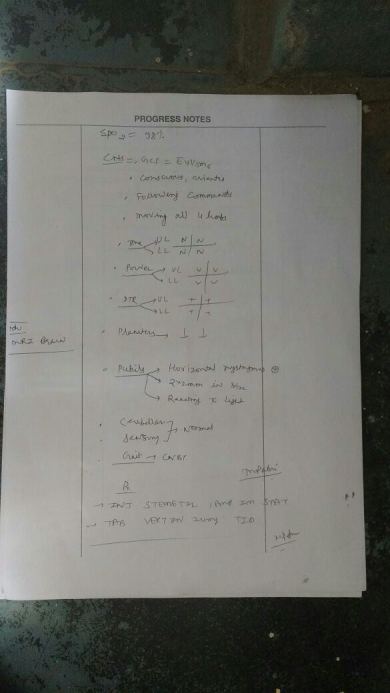 PROGRESS NOTES
SpO2 = 98%
CNS =, GCS = E4V5M6
• Conscious, oriented
• Following Commands
• moving all 4 limbs
• Tone UL N | N
LL N | N
• Power UL V | V
LL V | V
• DTR UL + | +
LL + | +
• Plantars ↓ ↓
Adv
MRI Brain
• Pupils → Horizontal nystagmus ⊕
→ 2x2mm in size
→ Reacting to light
• Cerebellar
• Sensory → Normal
• Gait → CNBT
Rx
→ INJ STEMETIL 1 amp IM STAT
→ TAB VERTIN 24mg TID